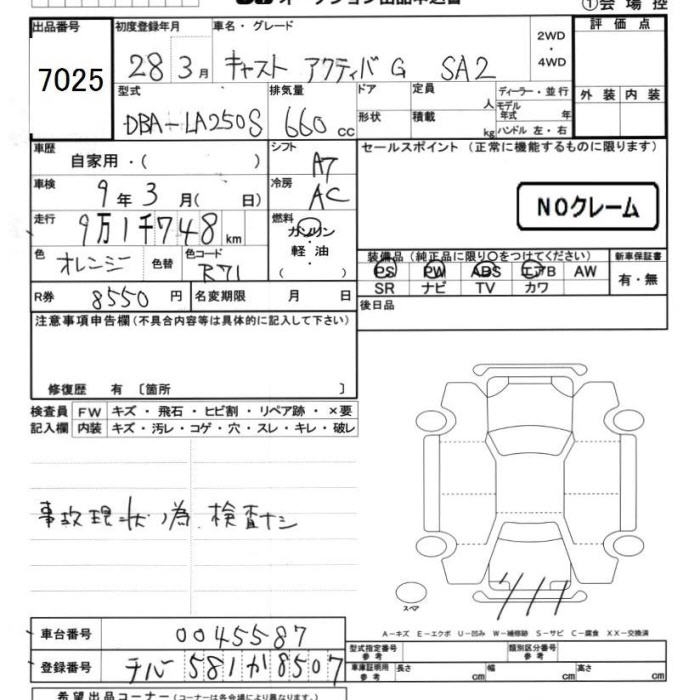 オークション出品申込書
①会場控
出品番号 7025
初度登録年月 28 3月
車名・グレード キャスト アクティバG SA2
2WD・4WD
評価点
外装 内装
型式 DBA-LA250S
排気量 660cc
ドア
定員 人
ディーラー・並行
モデル年式 年
形状
積載 kg
ハンドル 左・右
車歴 自家用・( )
シフト A7
セールスポイント(正常に機能するものに限ります)
車検 9年3月( 日)
冷房 AC
NOクレーム
走行 9万1千748km
燃料 ガソリン・軽油・( )
色 オレンジ 色替
色コード R71
装備品(純正品に限り〇をつけてください)
PS PW ABS エアB AW
SR ナビ TV カワ
新車保証書 有・無
R券 8550円
名変期限 月 日
後日品
注意事項申告欄(不具合内容等は具体的に記入して下さい)
修復歴 有〔箇所 〕
検査員記入欄
FW キズ・飛石・ヒビ割・リペア跡・×要
内装 キズ・汚レ・コゲ・穴・スレ・キレ・破レ
事故現状ノ為、検査ナシ
スペア
A-キズ E-エクボ U-凹み W-補修跡 S-サビ C-腐食 XX-交換済
車台番号 0045587
型式指定番号 参考
類別区分番号 参考
登録番号 チバ 581 か 8507
車庫証明用 参考
長さ cm 幅 cm 高さ cm
希望出品コーナー(コーナーは各会場により異なります。)